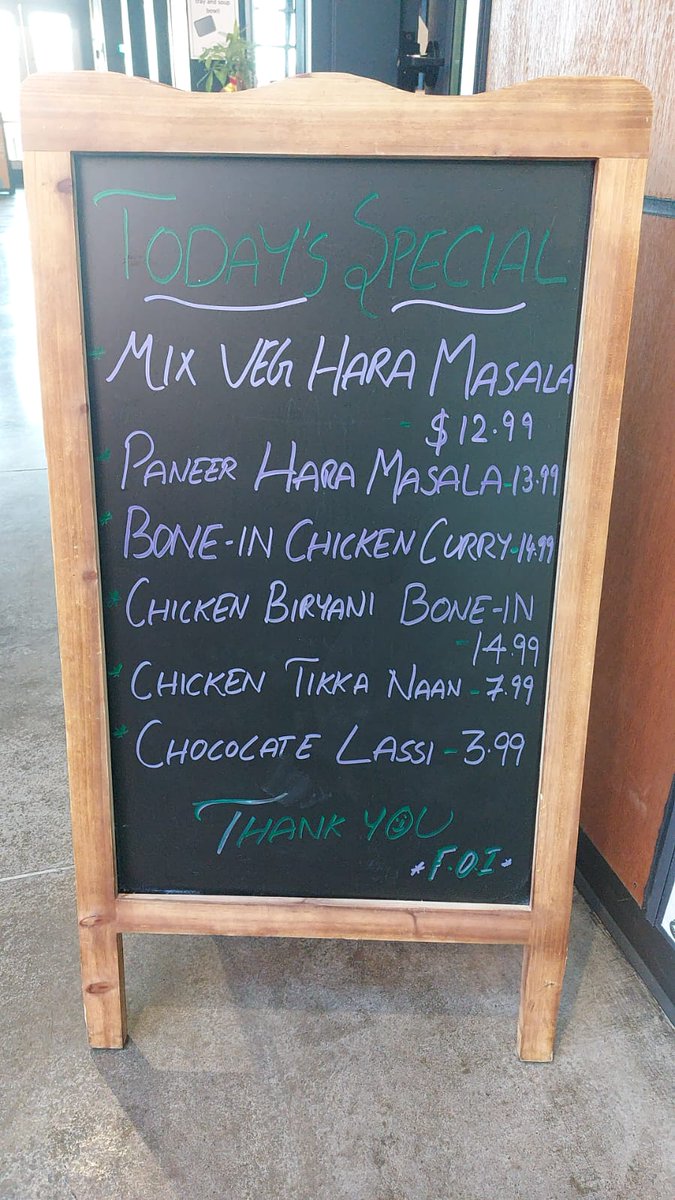 tray and soup
bowl
TODAY'S SPECIAL
* MIX VEG HARA MASALA
- $12.99
* PANEER HARA MASALA-13.99
* BONE-IN CHICKEN CURRY-14.99
* CHICKEN BIRYANI BONE-IN
- 14.99
* CHICKEN TIKKA NAAN - 7.99
* CHOCOLATE LASSI - 3.99
THANK YOU
*F.O.I*